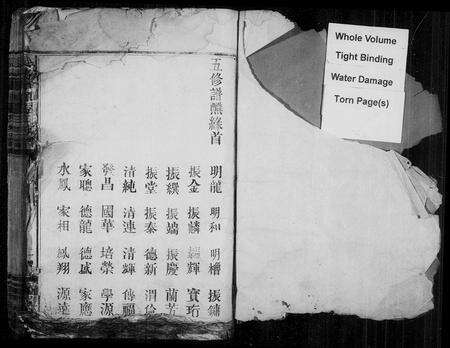 五修譜
首
明龍 明和 明禮 振鏞
振金 振麟 輝 寶珩
振纘 振端 振慶 蘭芳
振堂 振泰 德新
清純 清連 清輝 傳福
發昌 國華 培榮 學源
家聰 德龍 德成 家應
水鳳 家相 鳳翔 源達
Whole Volume
Tight Binding
Water Damage
Torn Page(s)